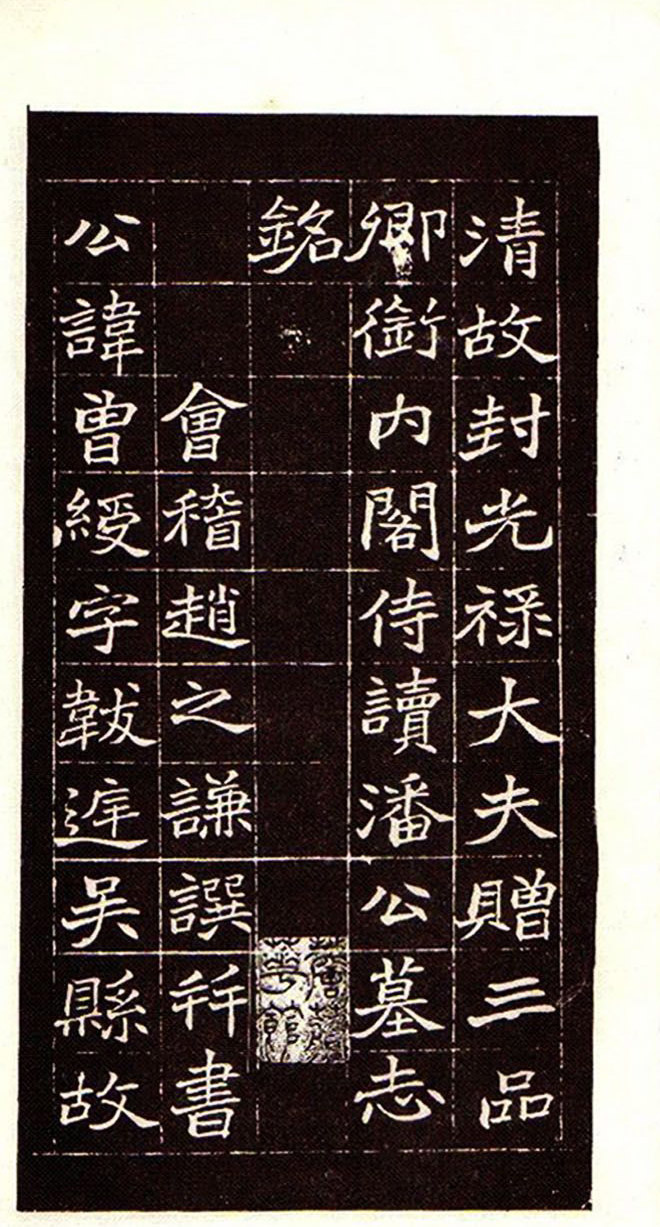 清故封光禄大夫贈三品
卿銜内閣侍讀潘公墓志
銘
薝蔔華館
會稽趙之謙譔并書
公諱曾綬字韍庭吴縣故